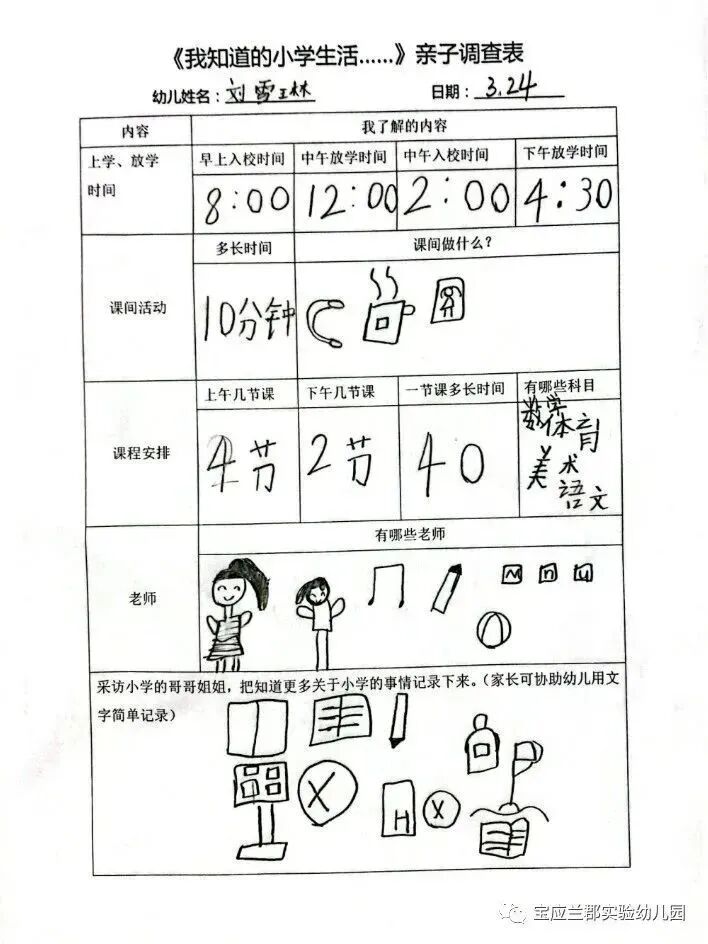 《我知道的小学生活……》亲子调查表
幼儿姓名：刘雪琳 日期：3.24
内容 我了解的内容
上学、放学时间 早上入校时间 中午放学时间 中午入校时间 下午放学时间
8:00 12:00 2:00 4:30
多长时间 课间做什么？
课间活动 10分钟
上午几节课 下午几节课 一节课多长时间 有哪些科目
课程安排 4节 2节 40 数学
体育
美术
語文
有哪些老师
老师 M n u
采访小学的哥哥姐姐，把知道更多关于小学的事情记录下来。（家长可协助幼儿用文
字简单记录）
X H X
宝应兰郡实验幼儿园